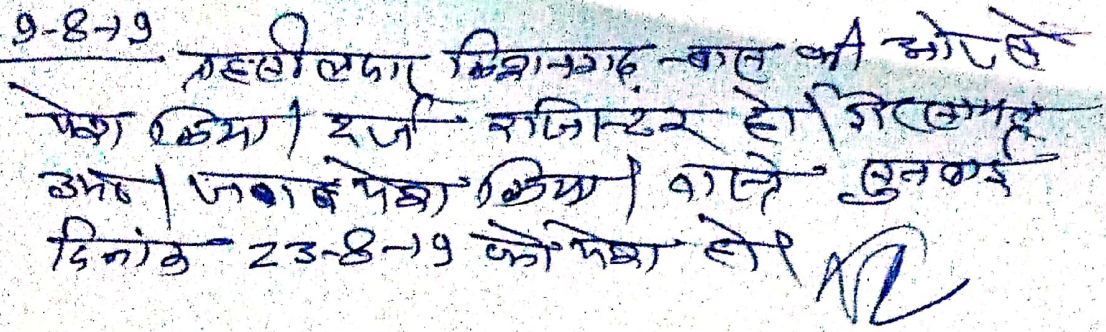 9-8-19
तहसीलदार किशनगढ़-बास की ओर से
पेश किया। दर्ज रजिस्टर हो।
जवाब पेश किया। वास्ते सुनवाई
दिनांक 23-8-19 को पेश हो।